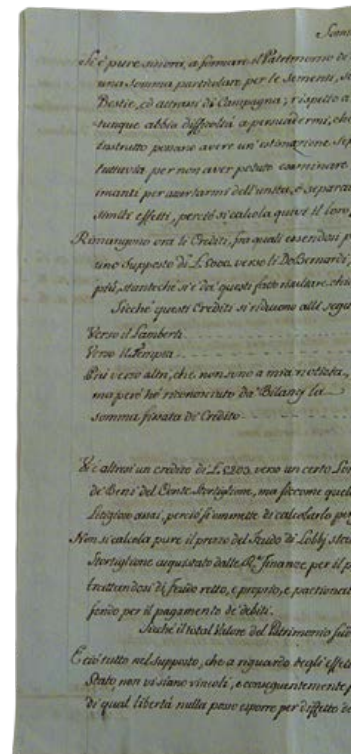 Somm
Si è pure sinora, a formare il Patrimonio di
una somma particolare per le Sementi, s
Bestie, ed attrassi di Campagna; rispetto a
tunque abbia difficoltà a persuadermi, che
instrutto possano avere un'estimazione sep
tuttavia per non aver potuto esaminare
imanti per accertarmi dell'unita, o separa
simili effetti, perciò si calcola quivi il loro
Rimangono ora li Crediti, fra quali essendosi p
uno supposto di L. 5000. verso li De Bernardi,
più, stanteché s'è da questi fatto risultare, che
Sicché questi Crediti si riducono alli segu
Verso il Lamberti
Verso il Tempia
Più verso altri, che non sono a mia notizia,
ma però hò riconosciuto da' Bilanzj la
somma fissata de' Crediti
Vi è altresì un credito di L. 5200. verso un certo
de' Beni del Conte Stortiglione, ma siccome quel
Litigioso assai, perciò si ommette di calcolarlo per
Non si calcola pure il prezzo del feudo di Lobbj sta
Stortiglione acquistato dalle R.e Finanze, per il p
trattandosi di feudo retto, e proprio, e pactionat
fondo per il pagamento de' debiti.
Sicché il total Valore del Patrimonio sud
E ciò tutto nel supposto, che a riguardo degli effet
Stato, non vi siano vincoli, e conseguentemente
di qual libertà nulla posso esporre per diffetto de